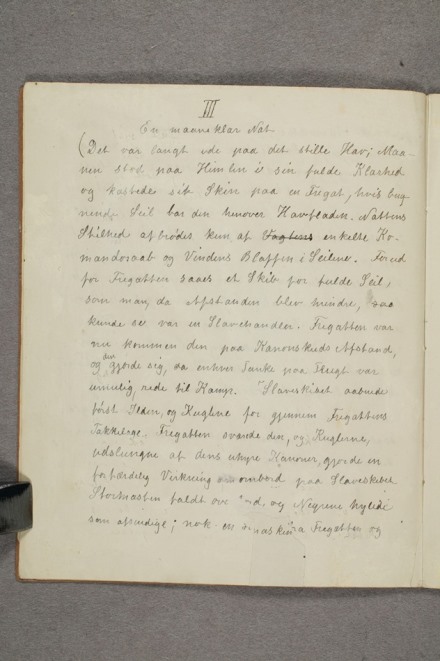 III
En maaneklar Nat
(Det var langt ude paa det stille Hav; Maa-
nen stod paa Himlen i sin fulde Klarhed
og kastede sit Skin paa en Fregat, hvis bug-
nende Seil bar den henover Havfladen. Nattens
Stilhed afbrødes kun af Vagtens enkelte Ko-
mandoraab og Vindens Blaffen i Seilene. Forud
for Fregatten saaes et Skib for fulde Seil,
som man, da Afstanden blev mindre, saa
kunde se var en Slavehandler. Fregatten var
nu kommen den paa Kanonskuds Afstand,
og den gjorde sig, da enhver Tanke paa Flugt var
umulig, rede til Kamp. Slaveskibet aabnede
først Ilden, og Kuglene for gjennem Fregattens
Takkelage. Fregatten svarede den, og Kuglerne,
udslungne af dens uhyre Kanoner, gjorde en
forfærdelig Virkning ombord paa Slaveskibet
Stormasten faldt over og Negrene hylede
som afsindige; nok en fra Fregatten og